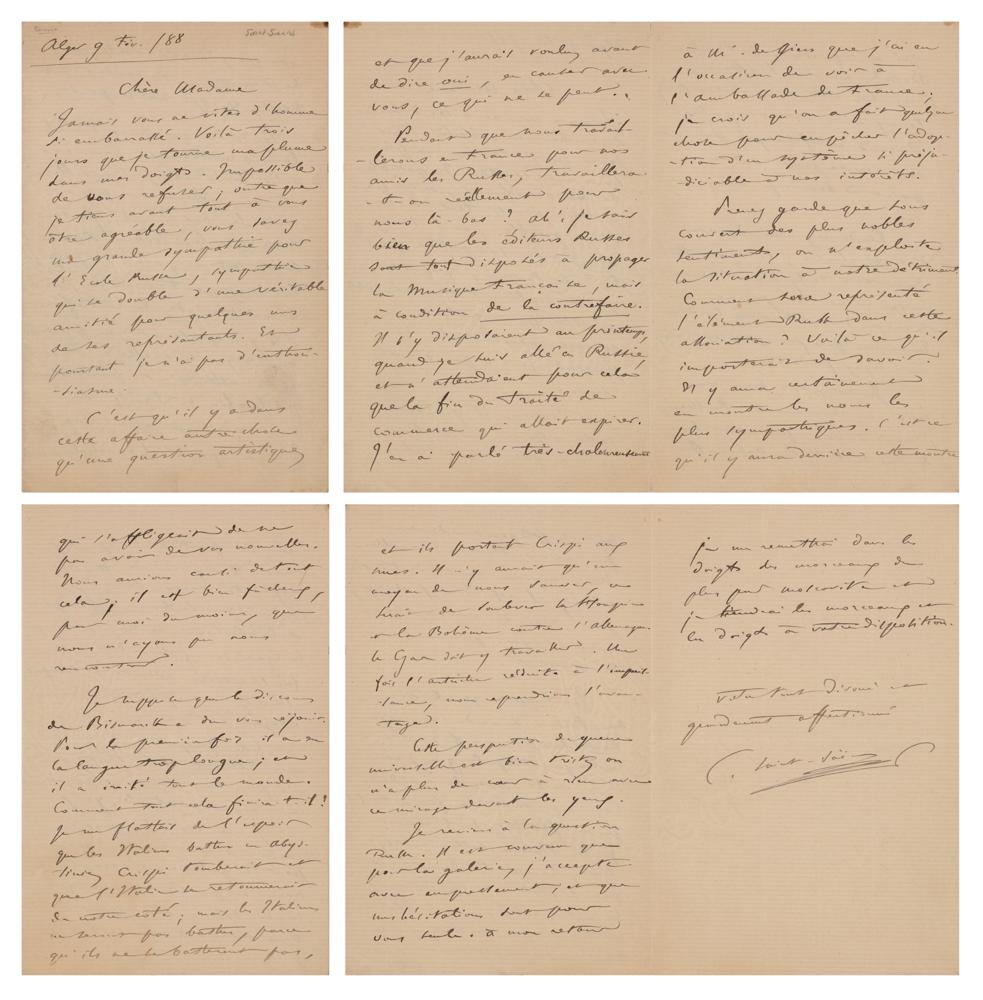 Alger 9 Fév. /88
Saint-Saëns
Chère Madame
Jamais vous ne vîtes d'homme
si embarrassé. Voilà trois
jours que je tourne ma plume
dans mes doigts. Impossible
de vous refuser ; outre que
je tiens avant tout à vous
être agréable, vous savez
ma grande sympathie pour
l'Ecole Russe, sympathie
qui se double d'une véritable
amitié pour quelques uns
de ses représentants. Et
pourtant je n'ai pas d'enthou-
-siasme.
C'est qu'il y a dans
cette affaire autre chose
qu'une question artistique,
et que j'aurais voulu, avant
de dire oui, en causer avec
vous, ce qui ne se peut.
Pendant que nous travail-
-lerons en France pour nos
amis les Russes, travaillera
-t-on réellement pour
nous là-bas ? Ah ! je sais
bien que les éditeurs Russes
sont tout disposés à propager
la Musique Française, mais
à condition de la contrefaire.
Ils s'y disposaient au printemps,
quand je suis allé en Russie,
et n'attendaient pour cela
que la fin du Traité de
commerce qui allait expirer.
J'en ai parlé très-chaleureusement
à Mr. de Giers que j'ai eu
l'occasion de voir à
l'ambassade de France ;
je crois qu'on a fait quelque
chose pour empêcher l'adop-
-tion d'un système si préju-
-diciable à nos intérêts.
Prenez garde que sous
couvert des plus nobles
sentiments, on n'exploite
la situation à notre détriment.
Comment sera représenté
l'élément Russe dans cette
association ? Voilà ce qu'il
importerait de savoir.
Il y aura certainement
en montre les noms les
plus sympathiques. C'est ce
qu'il y aura derrière cette montre
qui s'affligeait de ne
pas avoir de vos nouvelles.
Nous aurions causé de tout
cela ; il est bien fâcheux,
pour moi du moins, que
nous n'ayons pu nous
rencontrer.
Je suppose que le discours
de Bismarck a dû vous réjouir.
Pour la première fois il a eu
la langue trop longue, et
il a irrité tout le monde.
Comment tout cela finira-t-il !
Je me flattais de l'espoir
que les Italiens battus en Abys-
-sinie, Crispi tomberait et
que l'Italie se retournerait
de notre côté ; mais les Italiens
ne seront pas battus, parce
qu'ils ne se batteront pas,
et ils portent Crispi aux
nues. Il n'y aurait qu'un
moyen de nous sauver, ce
serait de soulever la Hongrie
et la Bohême contre l'Allemagne.
le Czar doit y travailler. Une
fois l'Autriche réduite à l'impuis-
-sance, nous reprendrions l'avan-
-tage.
Cette perspective de guerre
universelle est bien triste, on
n'a plus de cœur à rien avec
ce mirage devant les yeux.
Je reviens à la question
Russe. Il est convenu que
pour la galerie, j'accepte
avec empressement, et que
mes hésitations sont pour
vous seule. à mon retour
je me remettrai dans les
doigts des morceaux du
plus pur moscovite et
je tiendrai les morceaux et
les doigts à votre disposition.
Votre tout dévoué et
grandement affectionné
C. Saint-Saëns